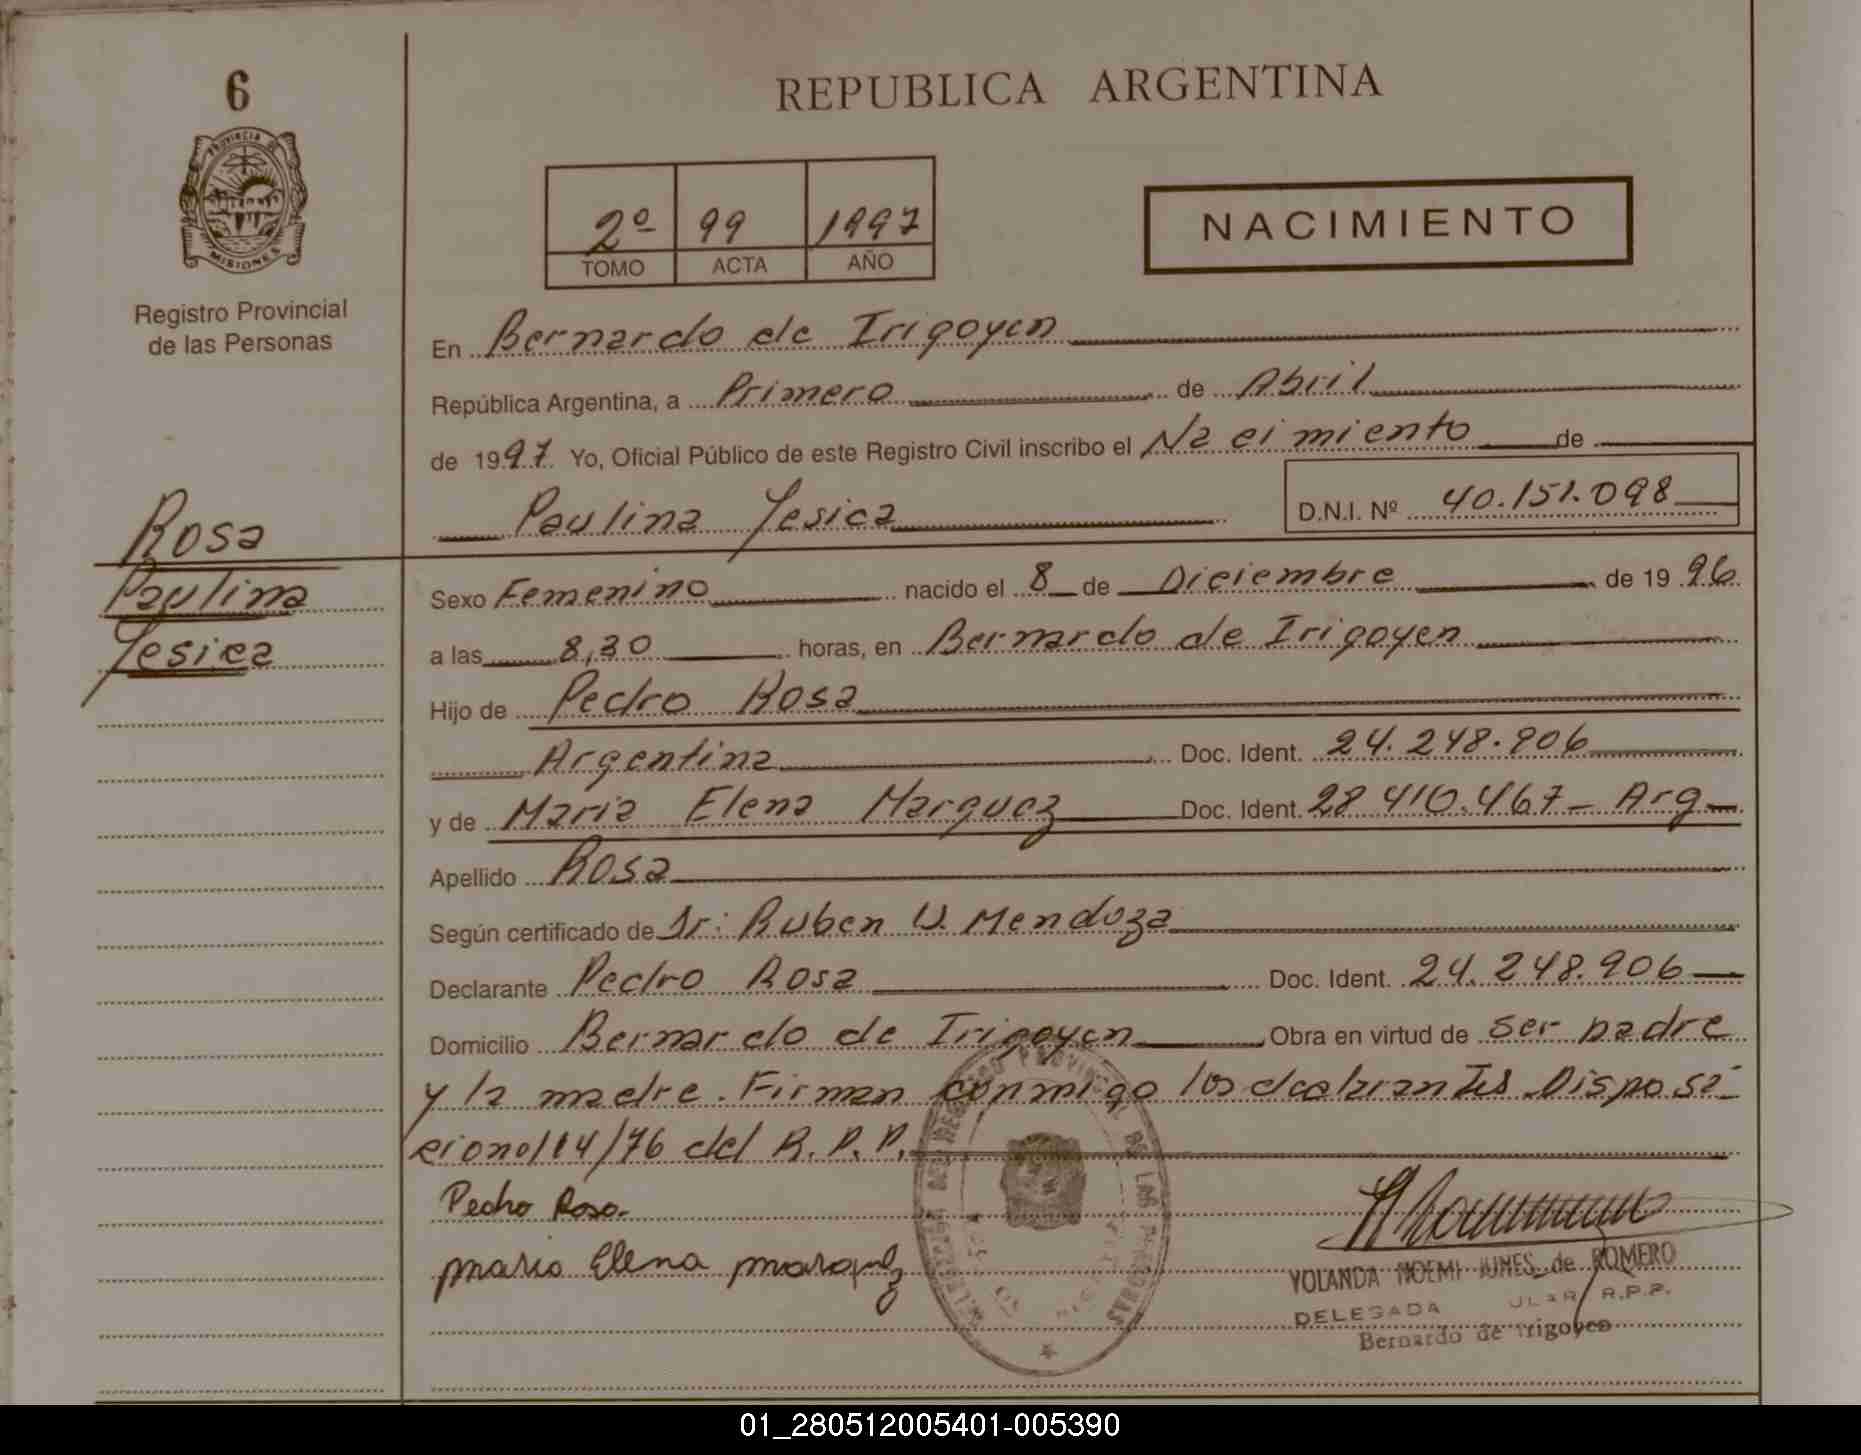 6
REPUBLICA ARGENTINA
PROVINCIA DE
MISIONES
2º 99 1997
TOMO ACTA AÑO
NACIMIENTO
Registro Provincial
de las Personas
En Bernardo de Irigoyen
República Argentina, a Primero de Abril
de 1997. Yo, Oficial Público de este Registro Civil inscribo el Nacimiento de
Paulina Yesica D.N.I. Nº 40.151.098
Rosa
Paulina
Yesica
Sexo Femenino nacido el 8 de Diciembre de 1996
a las 8,30 horas, en Bernardo de Irigoyen
Hijo de Pedro Rosa
Argentina Doc. Ident. 24.248.906
y de Maria Elena Marquez Doc. Ident. 28.410.467 - Arg
Apellido Rosa
Según certificado de Dr: Ruben U. Mendoza
Declarante Pedro Rosa Doc. Ident. 24.248.906
Domicilio Bernardo de Irigoyen Obra en virtud de ser padre
y la madre. Firman conmigo los declarantes Disposi
cion 114/76 del R.P.P.
Pedro Rosa
maria Elena marquez
YOLANDA NOEMI JUNES de ROMERO
DELEGADA R.P.P.
Bernardo de Irigoyen
01_280512005401-005390